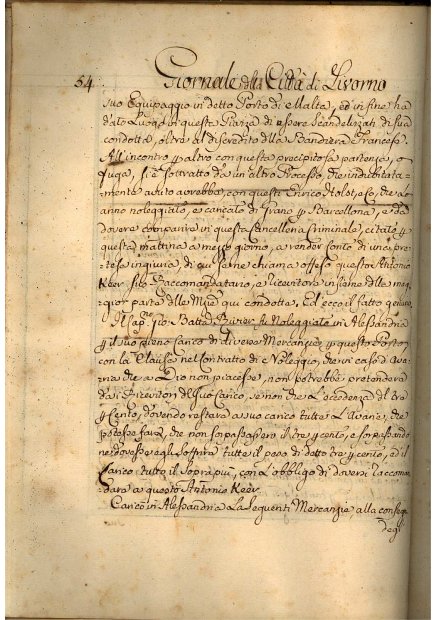 54 Giornale della Città di Livorno
suo Equipaggio in detto Porto di Malta, ed in fine ha
dato Luogo in questa Piazza di essere Scandelizati di sua
condotta, oltre al discredito della Bandiera Francese.
All'incontro per altro con questa precipitosa partenza, o
fuga, si è sottratto da un altro Processo, che indubitata-
mente avuto avrebbe, con questi Enrico
anno noleggiato, e caricato di Grano per Barcellona, e da
dovere comparire in questa Cancelleria Criminale, citato per
questa mattina a mezzo giorno, a render conto di una pre-
tesa ingiuria, di cui se ne chiama offeso questo Antonio
Keèr suo Raccomandatario, e ricevitore insieme della mag-
gior parte delle Mcie qui condotte. Ed ecco il fatto
Il Capno Gio Batta fu Noleggiato in Alessandria
per il suo pieno Carico di diverse Mercanzie per questo Porto
con la Clausola nel Contratto di Noleggio, che in caso di Ava-
ria che a Dio non piacesse, non potrebbe pretendere
da i Ricevitori del suo Carico, se non che L'eccedenza del tre
per Cento, dovendo restare a suo carico tutte L'Avarie, che
potesse fare, che non sorpassassero il tre per cento, e sorpassando
ne dovesse egli soffrire tutto il peso di detto tre per cento, ed il
Carico tutto il Sopra più, con L'obbligo di doversi raccoman-
dare a questo Antonio Keèr.
Caricò in Alessandria La Seguenti Mercanzie, alla consegna
degl'